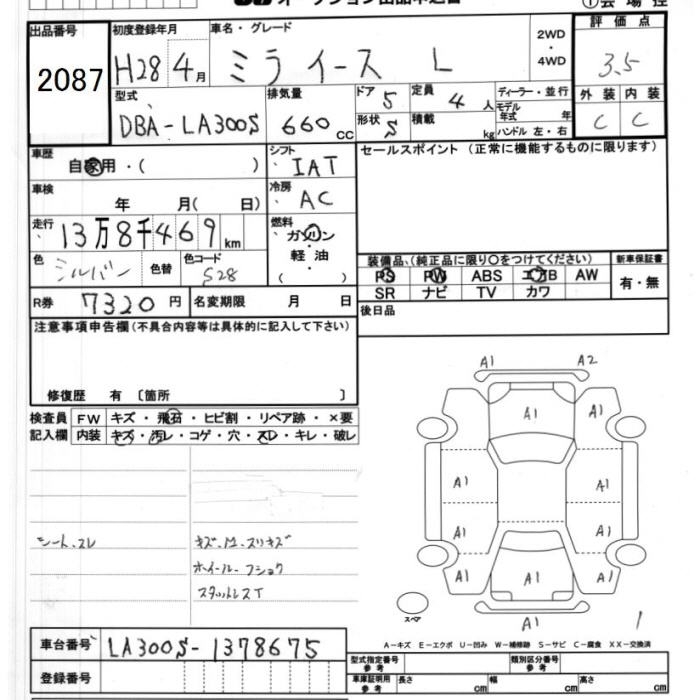 出品番号
2087
初度登録年月
H28 4月
車名・グレード
ミライース L
2WD
・
4WD
評価点
3.5
外装 内装
C C
型式
DBA-LA300S
排気量
660 cc
ドア 5
形状 S
定員 4 人
積載 kg
ディーラー・並行
モデル年式 年
ハンドル 左・右
車歴
自家用・( )
シフト
IAT
セールスポイント (正常に機能するものに限ります)
車検
年 月( 日)
冷房
AC
走行
13万8千469 km
燃料
ガソリン
・
軽油
・
( )
色
シルバー
色替
色コード
S28
装備品、(純正品に限り○をつけてください)
新車保証書
PS PW ABS エアB AW
SR ナビ TV カワ
有・無
R券 7320 円
名変期限 月 日
後日品
注意事項申告欄(不具合内容等は具体的に記入して下さい)
修復歴 有 〔箇所 〕
検査員
記入欄
FW キズ・飛石・ヒビ割・リペア跡・×要
内装 キズ・汚レ・コゲ・穴・スレ・キレ・破レ
シート、スレ
キズ、M、スリキズ
ホイール-フショク
スタットレスT
A1 A2
A1 A1 A1
A1 A1
A1 A1
A1 A1 A1
A1
スペア
1
A-キズ E-エクボ U-凹み W-補修跡 S-サビ C-腐食 XX-交換済
車台番号 LA300S-1378675
登録番号
型式指定番号 参考
類別区分番号 参考
車庫証明用 参考
長さ cm
幅 cm
高さ cm